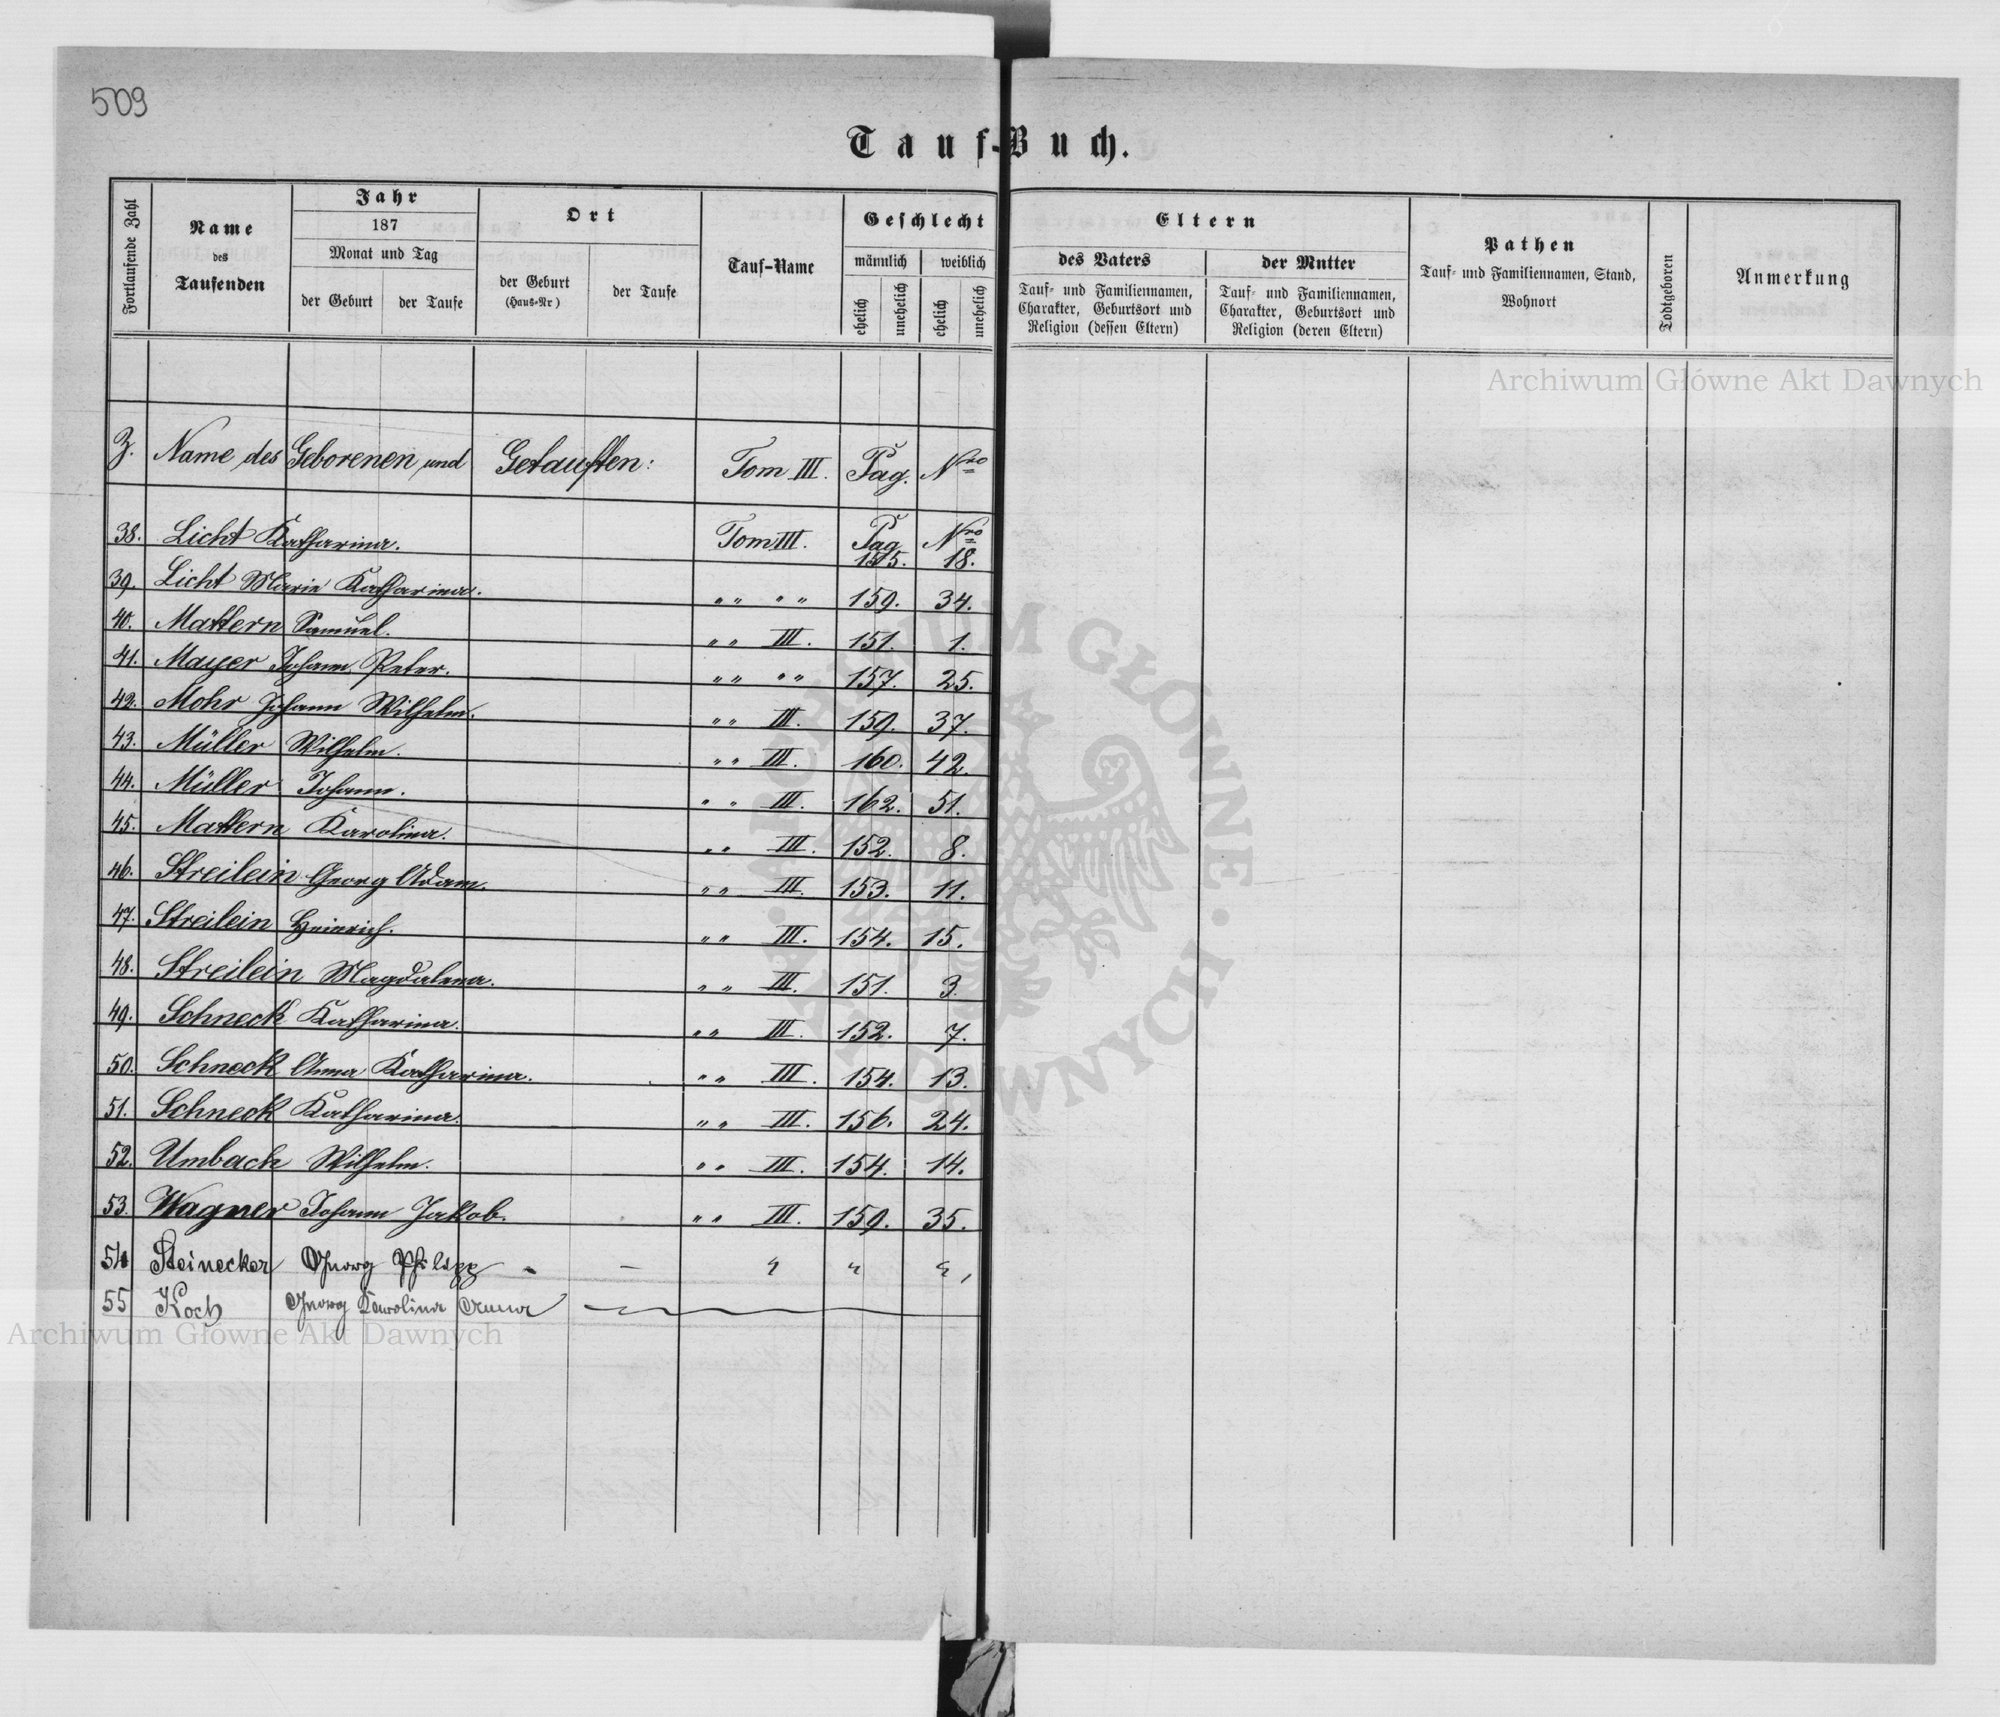 509
Tauf-Buch.
Fortlaufende Zahl
Name
des
Taufenden
Jahr
187
Monat und Tag
der Geburt
der Taufe
Ort
der Geburt
(Haus-Nr)
der Taufe
Tauf-Name
Geschlecht
männlich
weiblich
ehelich
unehelich
ehelich
unehelich
Eltern
des Vaters
Tauf- und Familiennamen,
Charakter, Geburtsort und
Religion (dessen Eltern)
der Mutter
Tauf- und Familiennamen,
Charakter, Geburtsort und
Religion (deren Eltern)
Pathen
Tauf- und Familiennamen, Stand,
Wohnort
Todtgeboren
Anmerkung
Archiwum Główne Akt Dawnych
Z. Name des Geborenen und Getauften: Tom III. Pag. Nro
38. Licht Katharina. Tom III. Pag 155. Nro 18.
39. Licht Marie Katharina. " " " " 159. 34.
40. Mattern Samuel. " " III. 151. 1.
41. Mayer Johann Peter. " " " " 157. 25.
42. Mohr Johann Wilhelm. " " III. 159. 37.
43. Müller Wilhelm. " " III. 160. 42.
44. Müller Johann. " " III. 162. 51.
45. Mattern Karolina. " " III. 152. 8.
46. Streilein Georg Adam. " " III. 153. 11.
47. Streilein Heinrich. " " III. 154. 15.
48. Streilein Magdalena. " " III. 151. 3.
49. Schneck Katharina. " " III. 152. 7.
50. Schneck Anna Katharina. " " III. 154. 13.
51. Schneck Katharina. " " III. 156. 24.
52. Umbach Wilhelm. " " III. 154. 14.
53. Wagner Johann Jakob. " " III. 159. 35.
54 Steinecker Georg Philipp - — " " "
55 Koch Georg Karolina Anna
Archiwum Główne Akt Dawnych
ARCHIWUM GŁÓWNE · AKT DAWNYCH ·